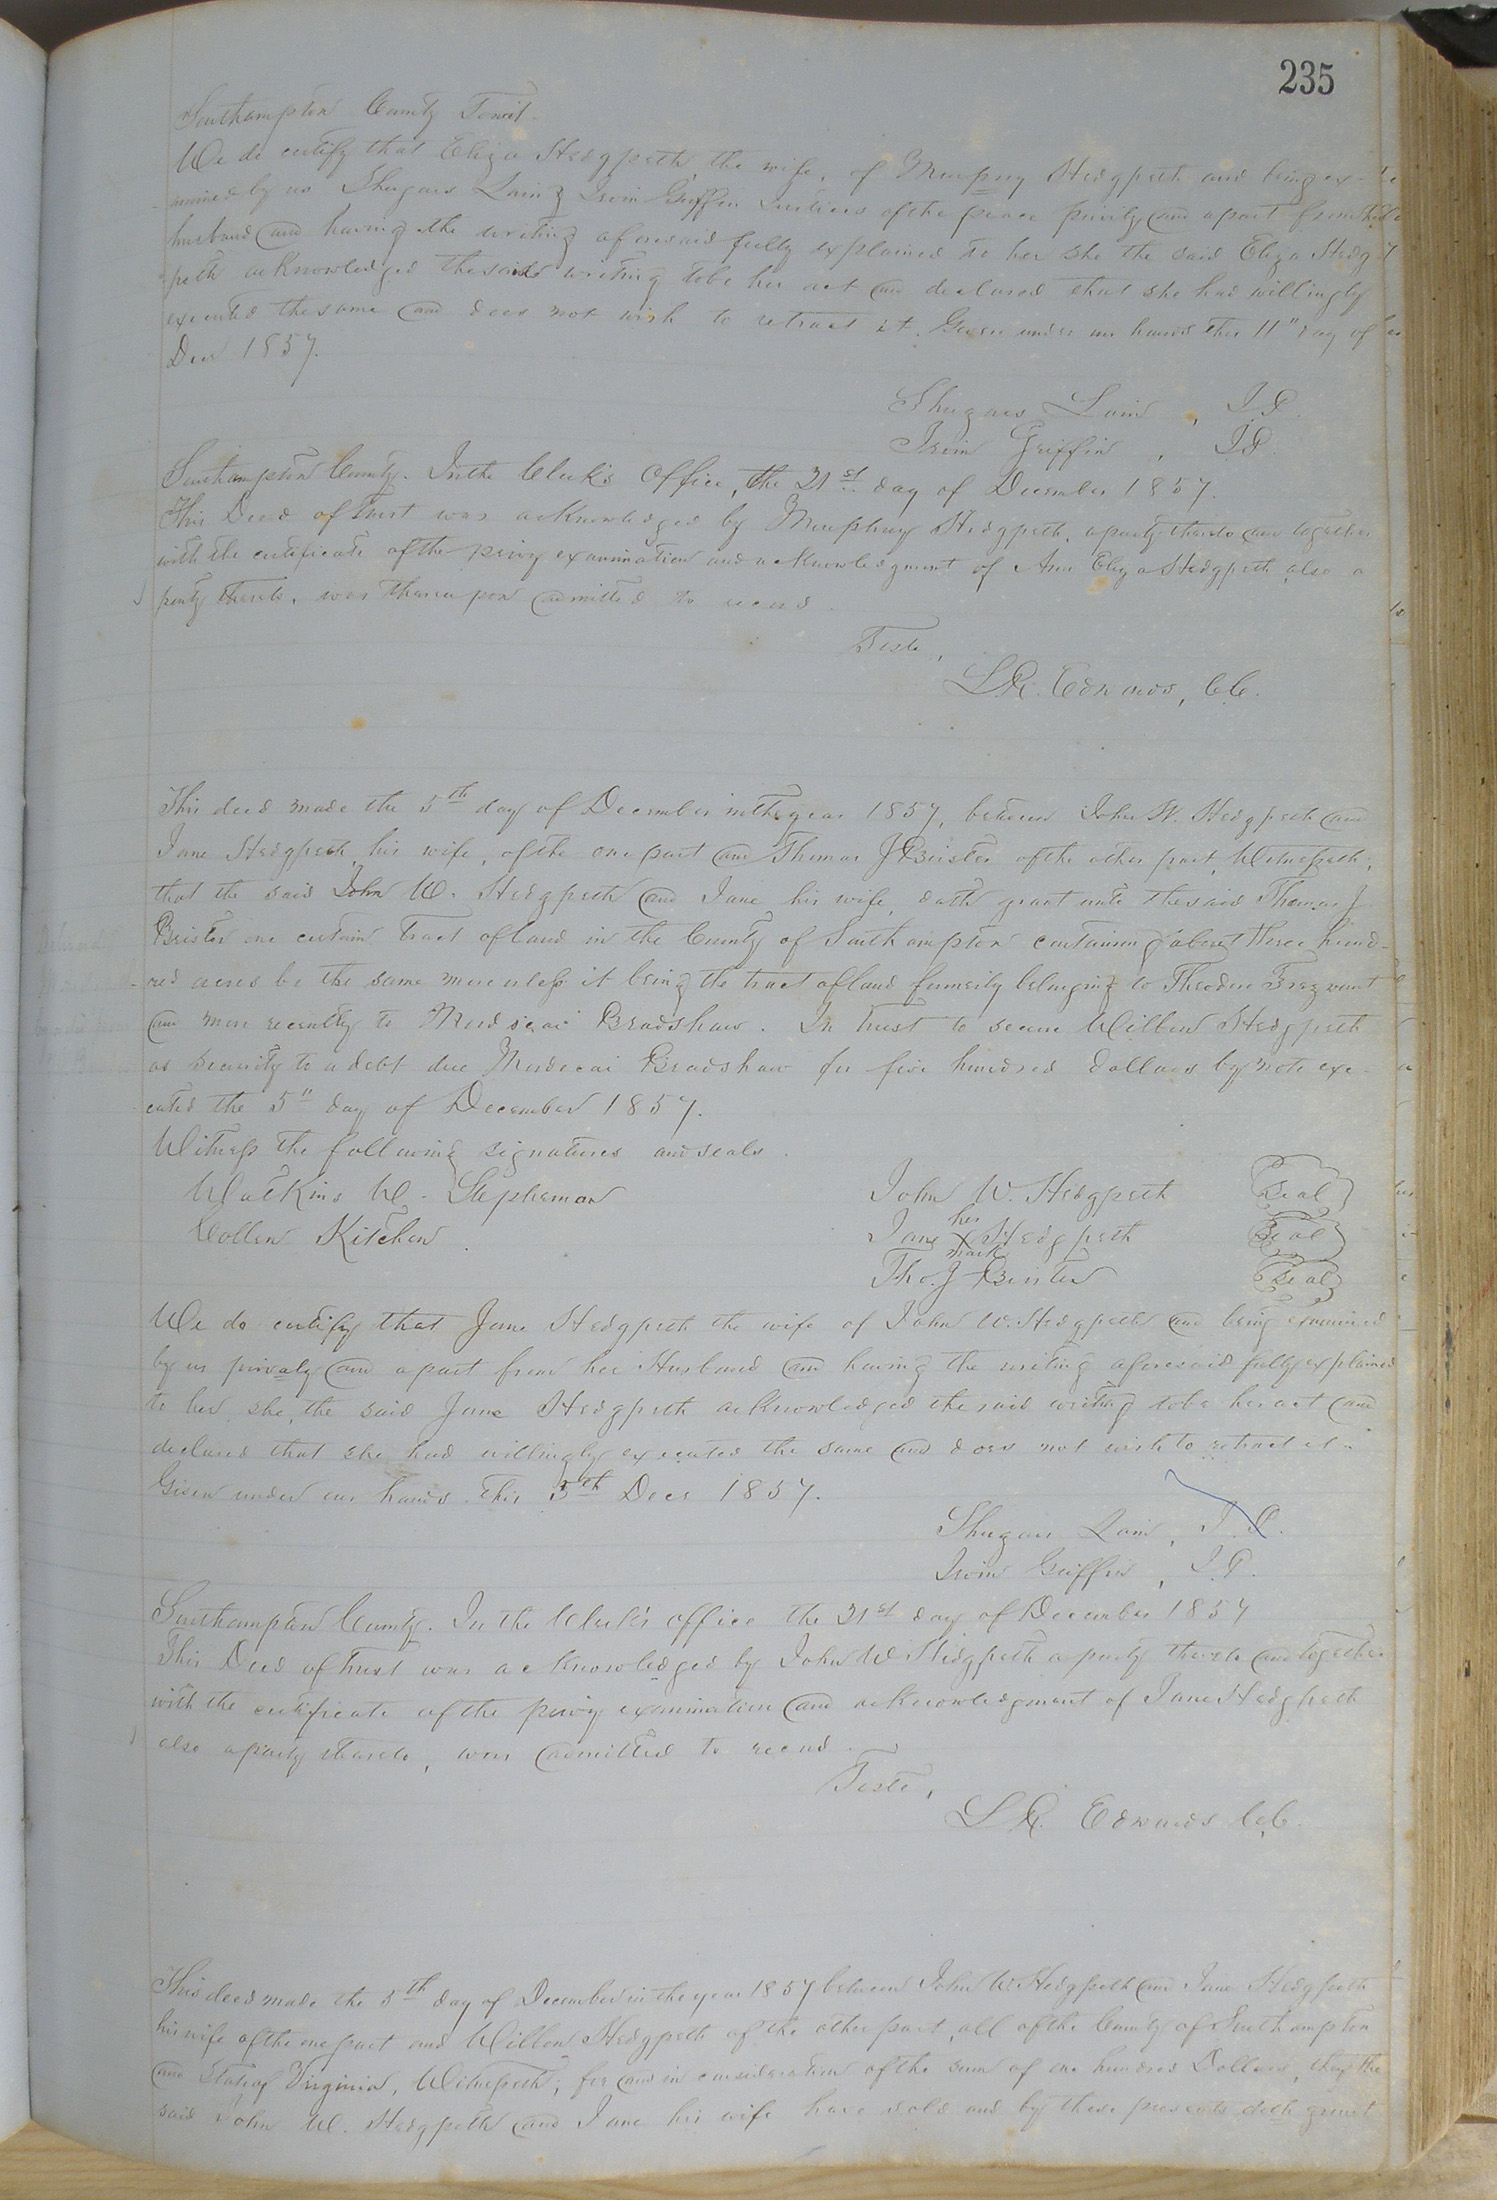 235
Southampton County Towit.
We do certify that Eliza Hedgpeth, the wife, of Murphry Hedgpeth and being ex-
amined by us Shugars Lain & Irvin Griffin Justices of the peace privily and apart from her
husband and having the writing aforesaid fully explained to her she the said Eliza Hedg
peth acknowledged the said writing tobe her act and declared that she had willingly
executed the same and does not wish to retract it. Given under our hands this 11" day of
Decr 1857.
Shugars Lain, J.P.
Irvin Griffin, J.P.
Southampton County. In the Clerk's Office, the 21st day of December 1857.
This Deed of Trust was acknowledged by Murphry Hedgpeth, a party thereto and together
with the certificate of the privy examination and acknowledgment of Ann Eliza Hedgpeth also a
party thereto, was thereupon admitted to record.
Teste,
L.R. Edwards, C.C.
This deed made the 5th day of December in the year 1857, between John W. Hedgpeth and
Jane Hedgpeth his wife, of the one part and Thomas J Brister of the other part, Witnesseth;
that the said John W. Hedgpeth and Jane his wife, doth grant unto the said Thomas J
Brister one certain tract of land in the County of Southampton containing about three hund-
red acres be the same more or less it being the tract of land formerly belonging to Theodore Trezvant
and more recently to Mordecai Bradshaw. In trust to secure Willew Hedgpeth
as security to a debt due Mordecai Bradshaw for five hundred dollars by note exe-
cuted the 5" day of December 1857.
Witness the following signatures and seals.
Watkins W. Stephenson John W. Hedgpeth Seal
Collen Kitchen Jane her X mark Hedgpeth Seal
Tho. J Brister Seal
We do certify that Jane Hedgpeth the wife of John W. Hedgpeth and being examined
by us privaly and apart from her Husband and having the writing aforesaid fully explained
to her, she, the said Jane Hedgpeth acknowledged the said writing tobe her act and
declared that she had willingly executed the same and does not wish to retract it.
Given under our hands this 5th Decr 1857.
Shugars Lain, J.P.
Irvin Griffin, J.P.
Southampton County. In the Clerk's office the 21st day of December 1857
This Deed of Trust was acknowledged by John W Hedgpeth a party thereto and together
with the certificate of the privy examination and acknowledgment of Jane Hedgpeth
also a party thereto, was admitted to record.
Teste,
L.R. Edwards C.C.
This deed made the 5th day of December in the year 1857 between John W. Hedgpeth and Jane Hedgpeth
his wife of the one part and Willew Hedgpeth of the other part, all of the County of Southampton
and State of Virginia, Witnesseth; for and in consideration of the sum of one hundred Dollars, they the
said John W. Hedgpeth and Jane his wife have sold and by these presents doth grant